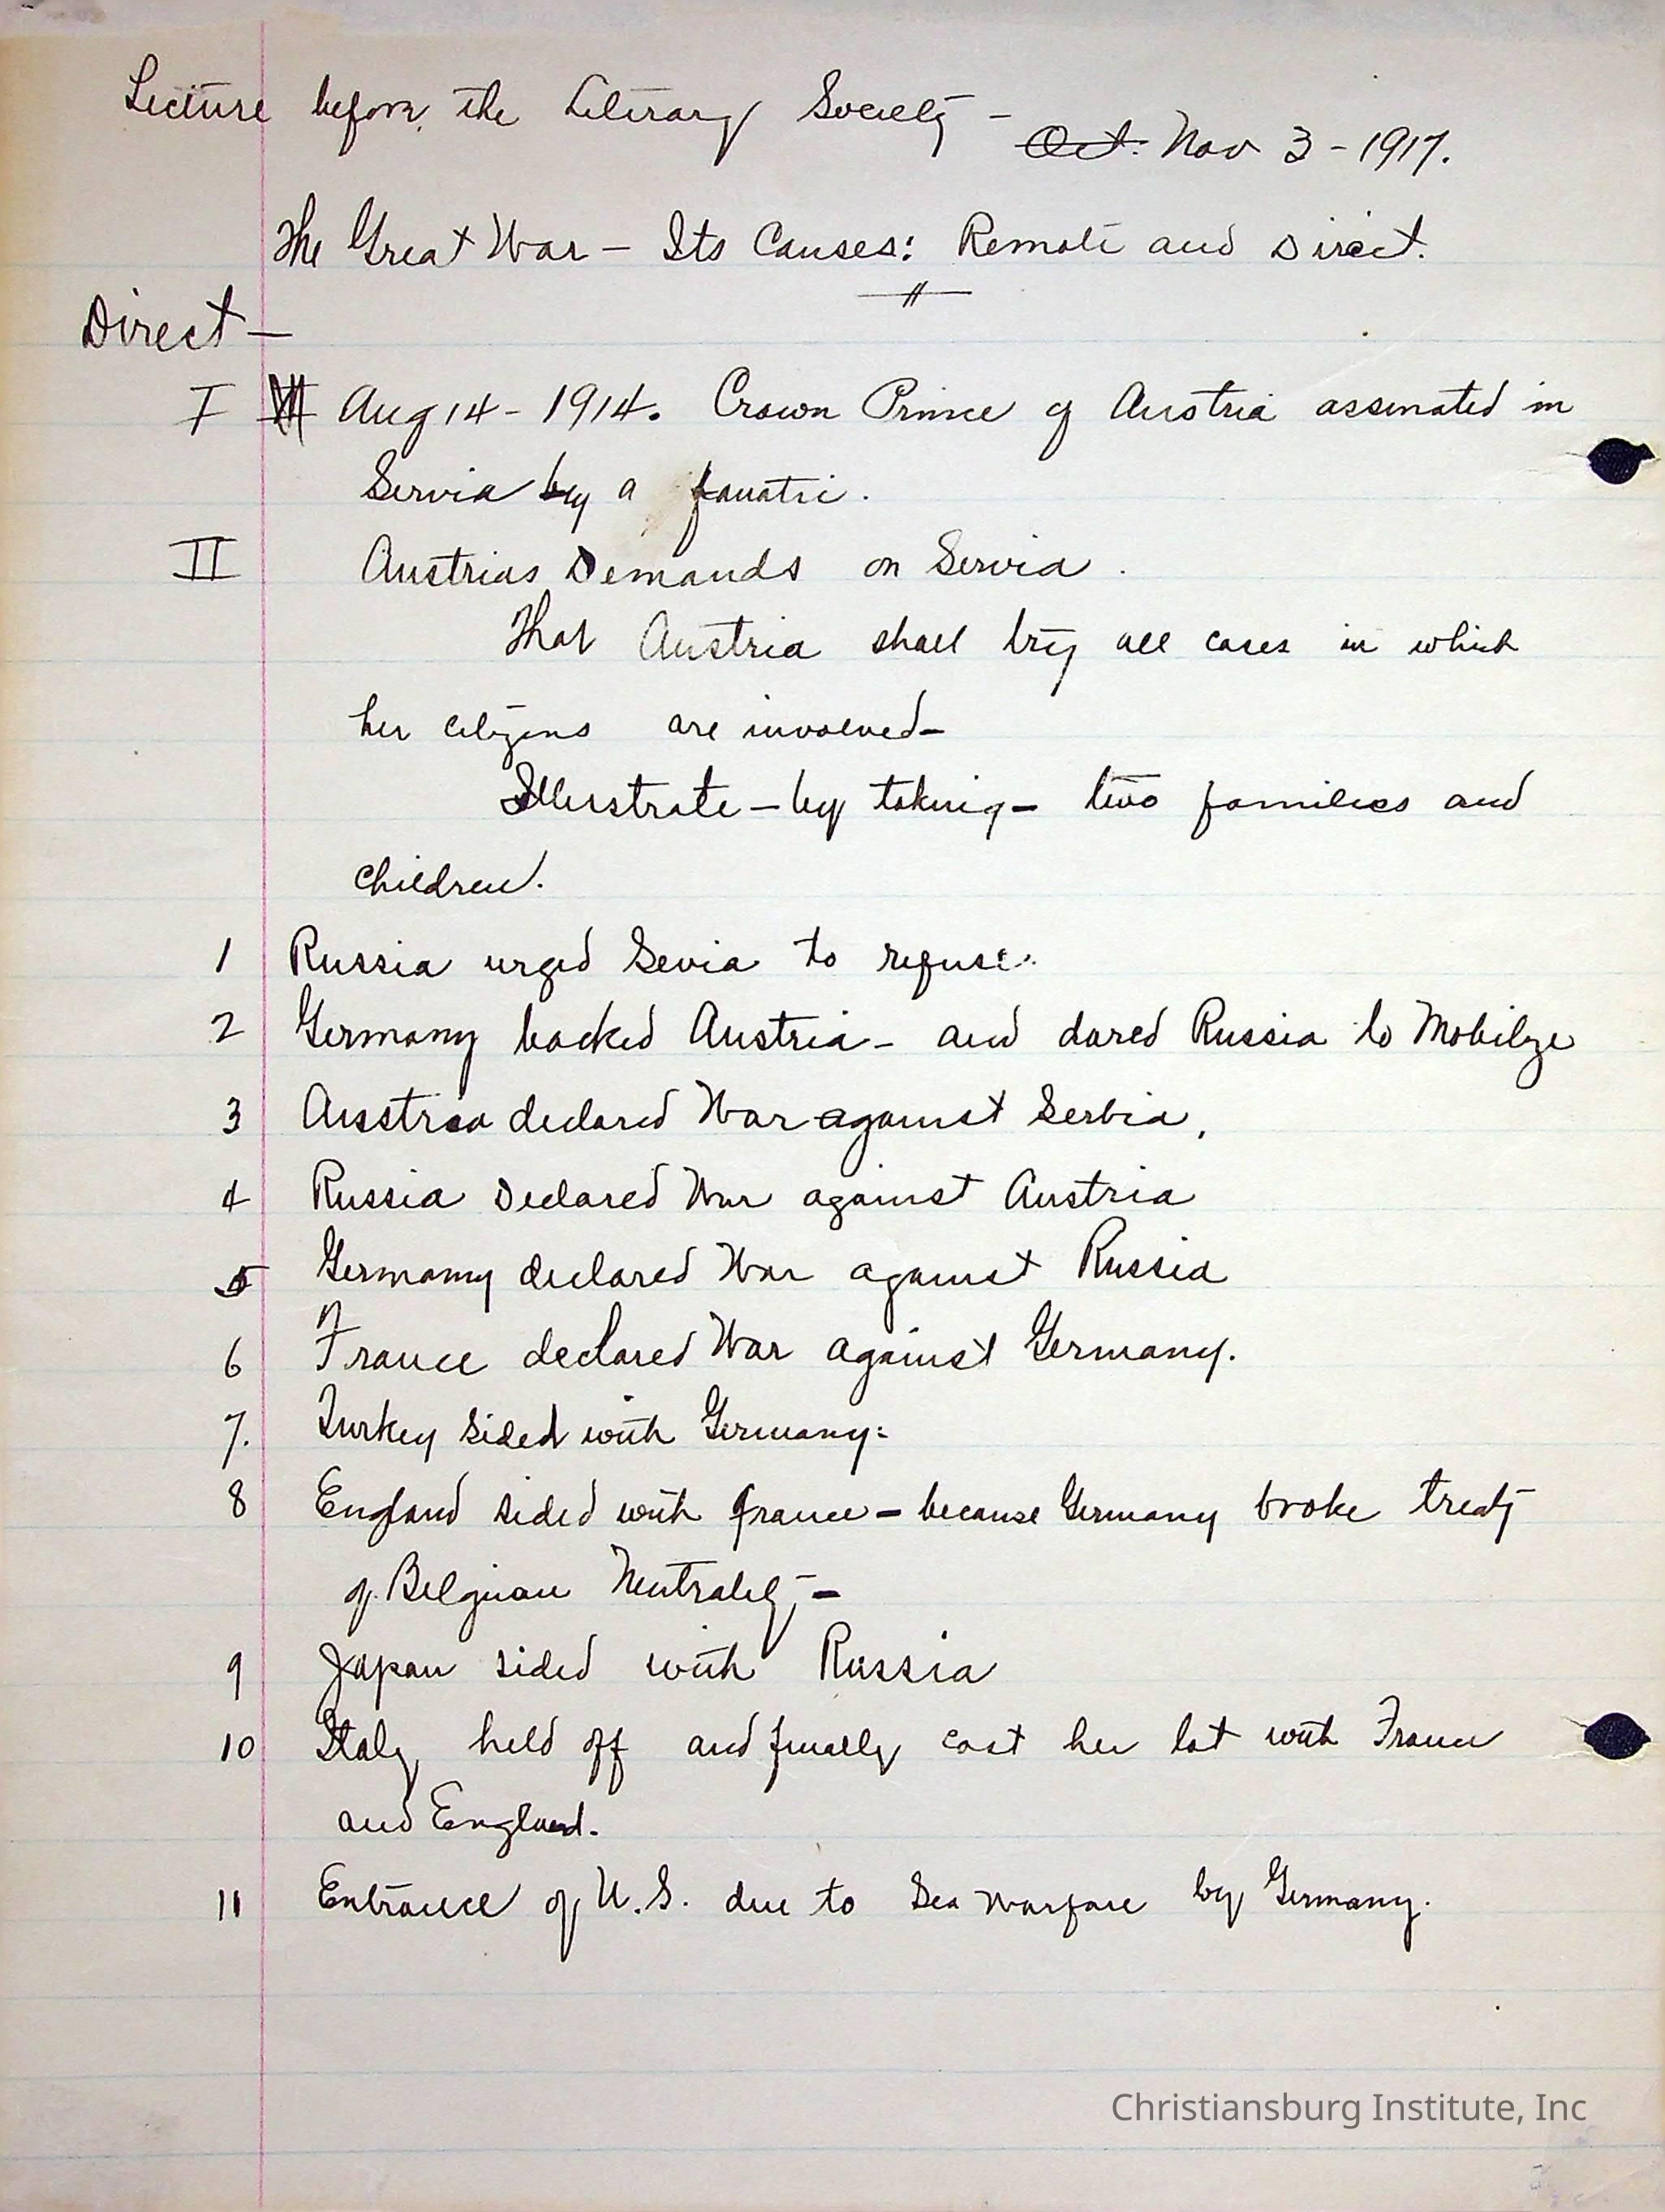 Lecture before the Literary Society -
Oct. Nov 3 - 1917.
The Great War - Its Causes: Remote and Direct.
Direct -
I Aug 14 - 1914. Crown Prince of Austria assinated in
Servia by a fanatic.
II Austrias Demands on Servia.
That Austria shall try all cases in which
her citizens are involved -
Illustrate - by taking - two families and
children.
1 Russia urged Sevia to refuse.
2 Germany backed Austria - and dared Russia to Mobilze
3 Austria declared War against Serbia,
4 Russia Declared War against Austria
5 Germany declared War against Russia
6 France declared War against Germany.
7. Turkey sided with Germany:
8 England sided with france - because Germany broke treaty
of Belgian Neutrality, -
9 Japan sided with Russia
10 Italy held off and finally cast her lot with France
and England.
11 Entrance of U.S. due to Sea Warfare by Germany.
Christiansburg Institute, Inc